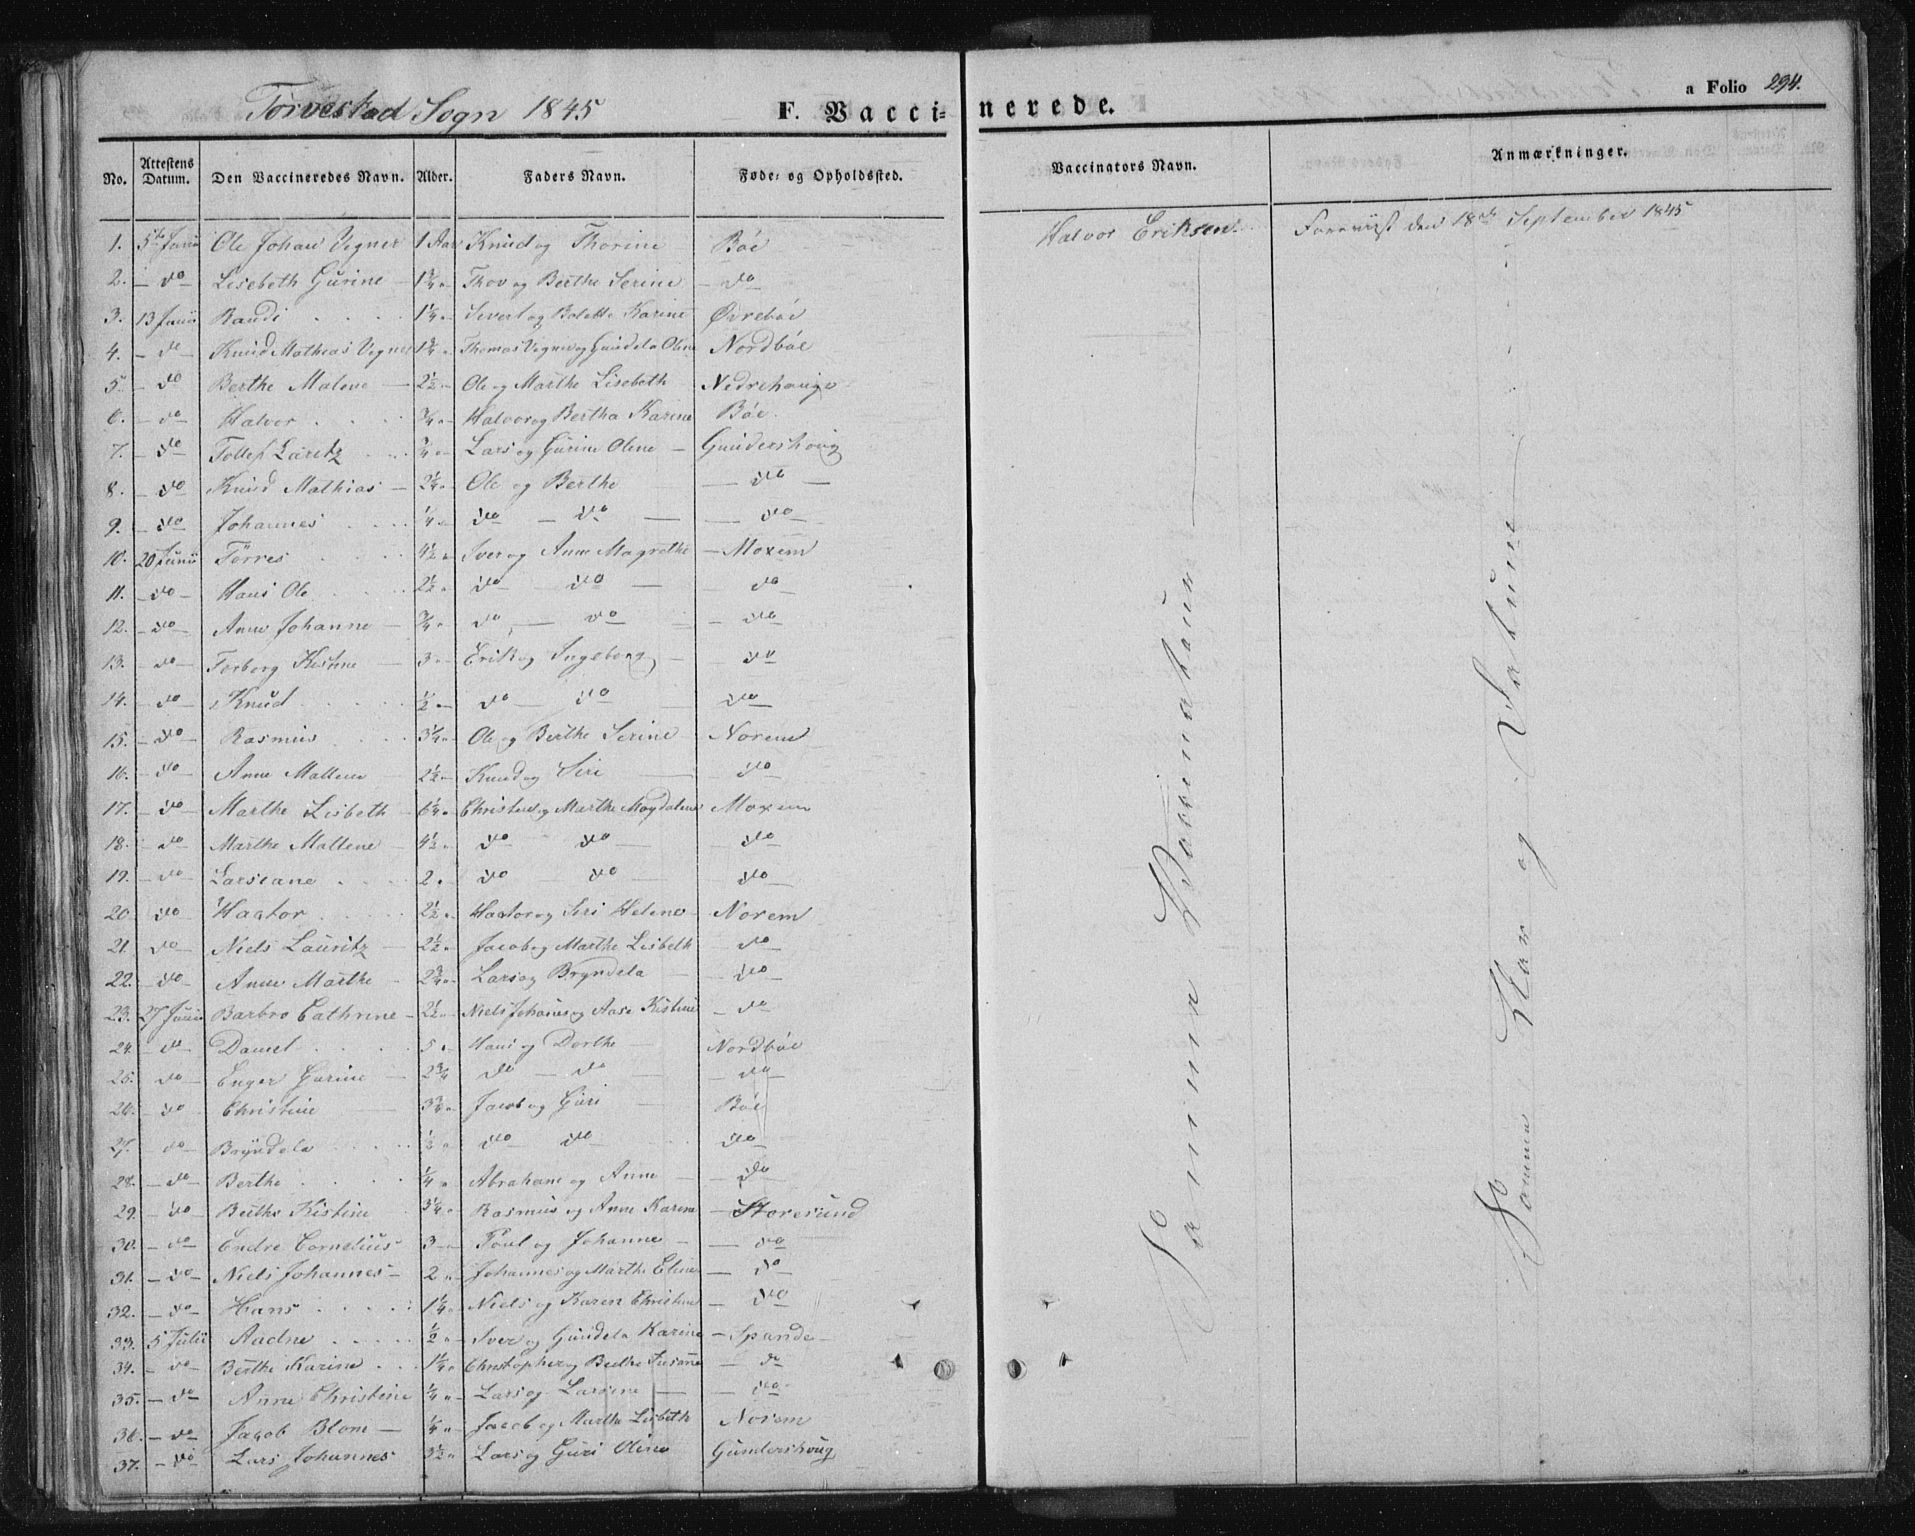 Torvestad Sogn 1845
F. Vaccinerede.
a Folio 294.
No. Attestens Datum. Den Vaccineredes Navn. Alder. Faders Navn. Føde- og Opholdssted. Vaccinators Navn. Anmærkninger.
1. 5te Junii Ole Johan Vegner 1 Aar Knud og Thorine Böe Halvor Eriksen. Foreviist den 18de September 1845
2. do Lisebeth Gurine 1 3/4 " Thov og Berthe Serine do
3. 13 Junii Randi 1 1/4 " Sivert og Bolette Karine Øvreböe
4. do Knud Mathias Vegner 1 3/4 " Thomas Vegner og Gundela Oline Nordböe
5. do Berthe Malene 2 1/2 Ole og Marthe Lisebeth Nedrehauge
6. do Halvor 3/4 " Halvor og Bertha Karine Böe.
7. do Tollef Laritz 3/4 " Lars og Gurine Olene Gundershoug
8. do Knud Mathias 2 1/4 " Ole og Berthe do
9. do Johannes 1/4 " do do do
10. 20 Junii Törres 4 1/2 " Iver og Anne Magrethe Moxem
11. do Hans Ole 2 1/2 " do do do
12. do Anne Johanne 3/4 " do do do
13. do Torborg Kistine 3 " Erik og Ingeborg do
14. do Knud 1/2 " do do do
15. do Rasmus 3 1/4 " Ole og Berthe Serine Norem
16. do Anne Mallene 2 1/2 " Knud og Siri do
17. do Marthe Lisbeth 6 1/4 " Christen og Marthe Magdalene Moxem
18. do Marthe Mallene 4 1/2 " do do do
19. do Larseane 2 " do do do
20 do Hactor 2 1/2 " Hactor og Siri Helene Norem
21. do Niels Lauritz 2 1/2 " Jacob og Marthe Lisbeth do
22. do Anne Marthe 2 3/4 " Lars og Bryndela do
23. 27 Junii Barbro Cathrine 2 1/2 " Niels Johanes og Aase Kistine do
24. do Daniel 5 " Hans og Dorthe Nordböe
25. do Enger Gurine 2 3/4 do do do
26. do Christine 3 3/4 " Jacob og Guri Böe
27. do Bryndela 1/2 " do do do
28. do Berthe 1/4 " Abraham og Anne do
29. do Berthe Kistine 3 1/4 " Rasmus og Anne Karine Storesund
30. do Endre Cornelius 3 " Poul og Johanne do
31. do Niels Johannes 2 " Johannes og Marthe Eline do
32. do Hans 1 1/4 " Niels og Karen Christine do
33. 5 Julii Aadne 1/2 " Iver og Gundela Karine Spande
34. do Berthe Karine 1 1/4 " Christopher og Berthe Susanne do
35. do Anne Christine 1/4 " Lars og Larsine do
36. do Jacob Blom 1/4 " Jacob og Marthe Lisbeth Norem
37. do Lars Johannes 3 1/2 " Lars og Guri Oline Gundershoug
Samme Vaccinateur
Samme Aar og Datum